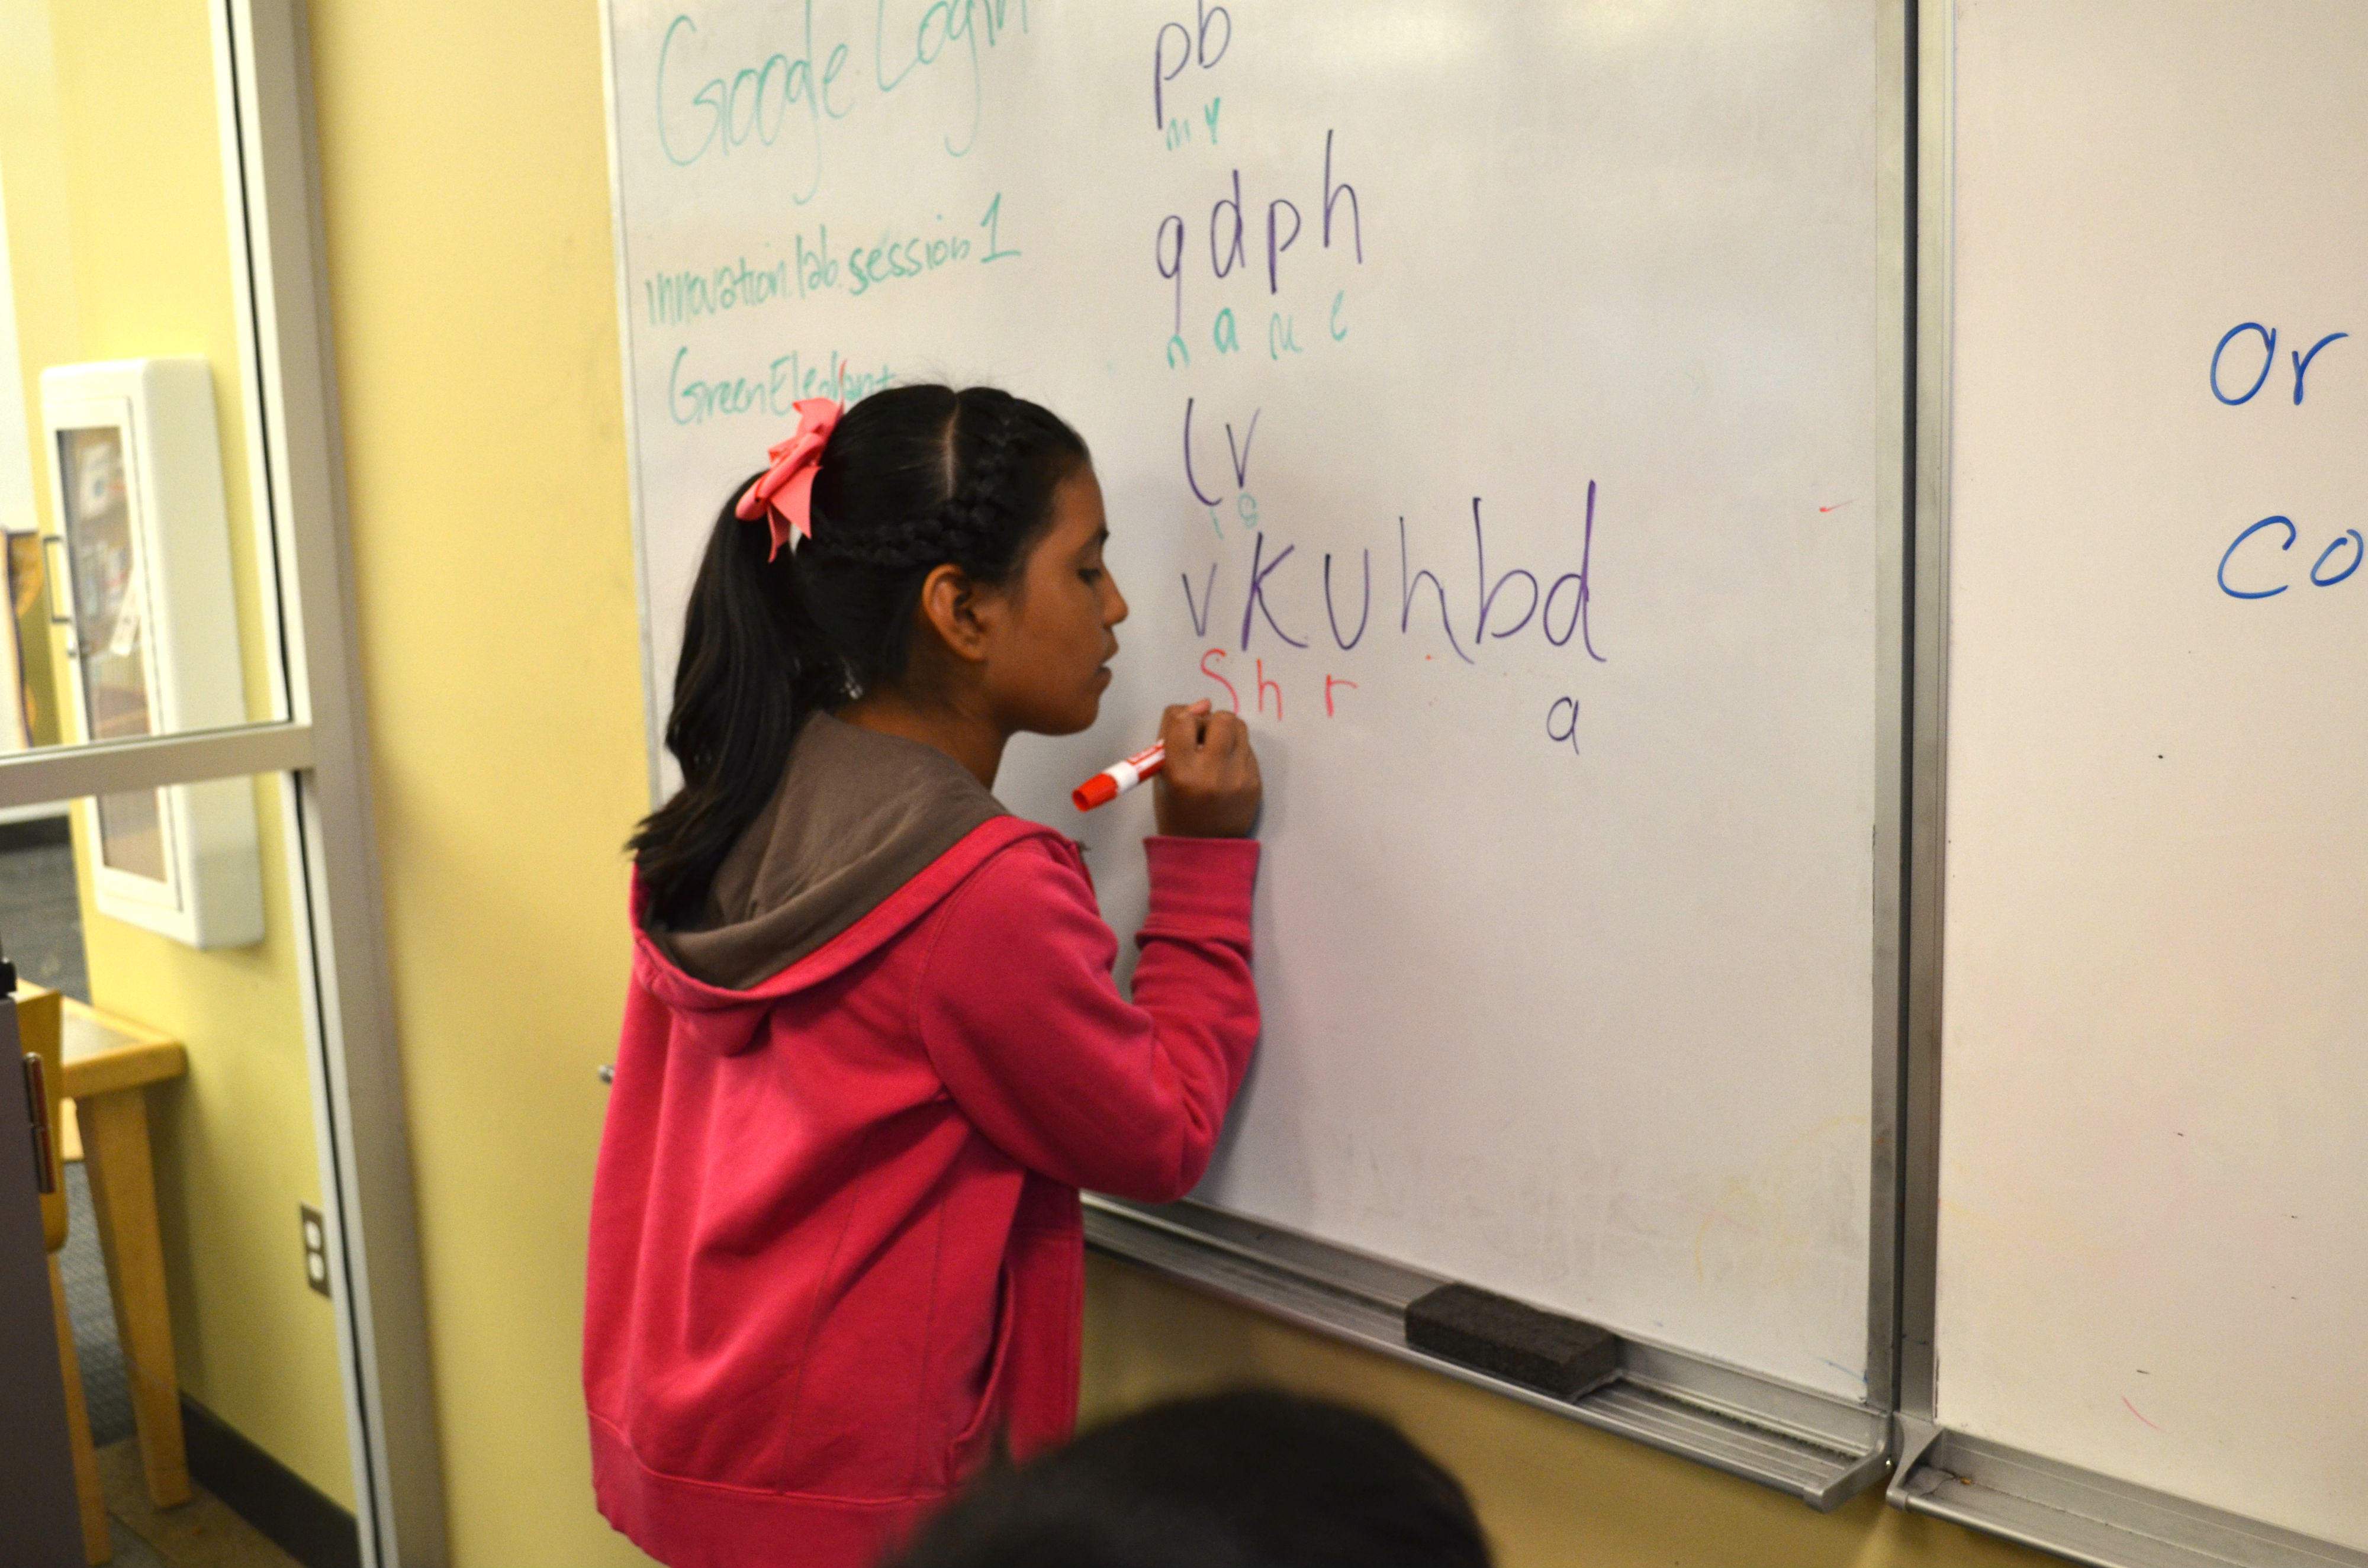 Google Login
innovation.lab.session1
GreenElephant
pb
my
qdph
name
lv
is
vkuhbd
Shr
a
or
co